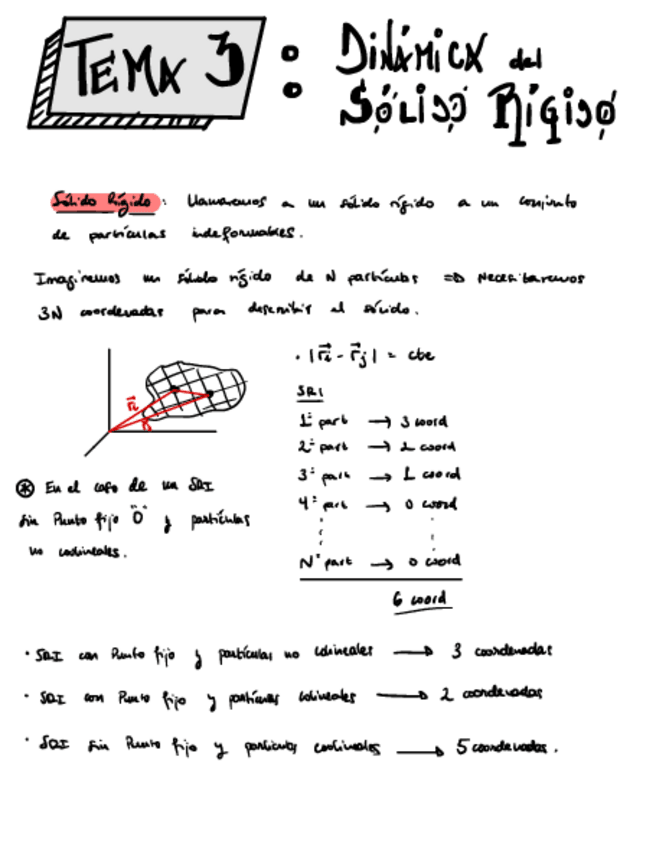 TEMA 3 : DINÁMICA del
SÓLIDO RÍGIDO
Sólido Rígido: Llamaremos a un sólido rígido a un conjunto
de partículas indeformables.
Imaginemos un sólido rígido de N partículas ⇒ Necesitaremos
3N coordenadas para describir el sólido.
· |r⃗i - r⃗j| = cte
SRI
1ª part → 3 coord
2ª part → 2 coord
3ª part → 1 coord
4ª part → 0 coord
Nª part → 0 coord
6 coord
r⃗i
r⃗j
⊛ En el caso de un SRI
sin Punto fijo "O" y partículas
no colineales.
· SRI con Punto fijo y partículas no colineales → 3 coordenadas
· SRI con Punto fijo y partículas colineales → 2 coordenadas
· SRI sin Punto fijo y partículas colineales → 5 coordenadas.